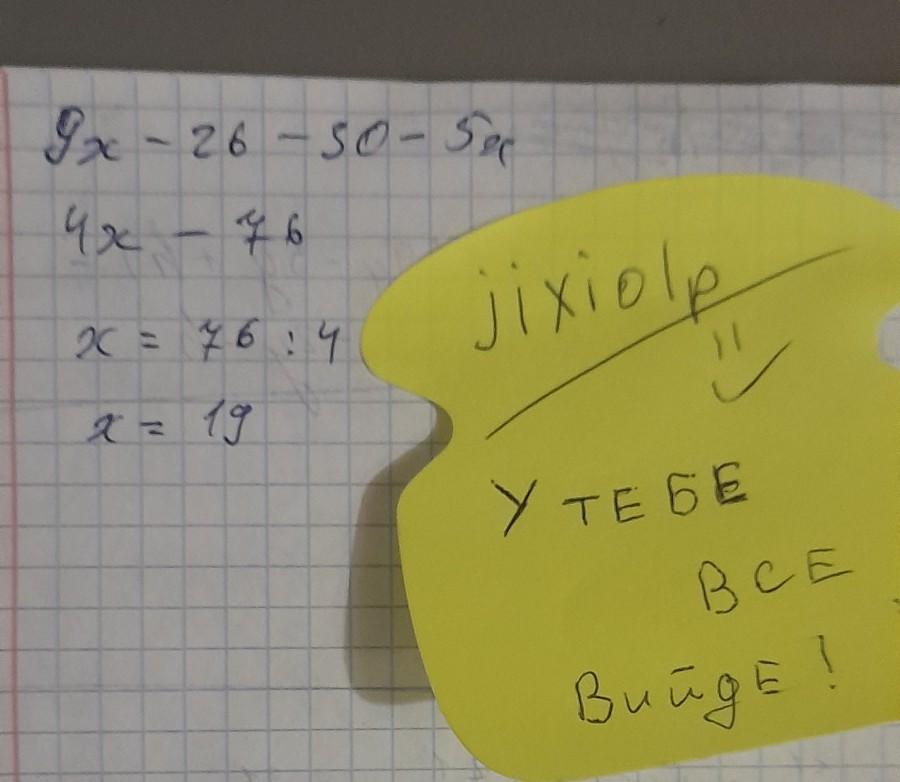 9x - 26 - 50 - 5x
4x - 76
x = 76 : 4
x = 19
jixiolp
У ТЕБЕ
ВСЕ
ВийдЕ!